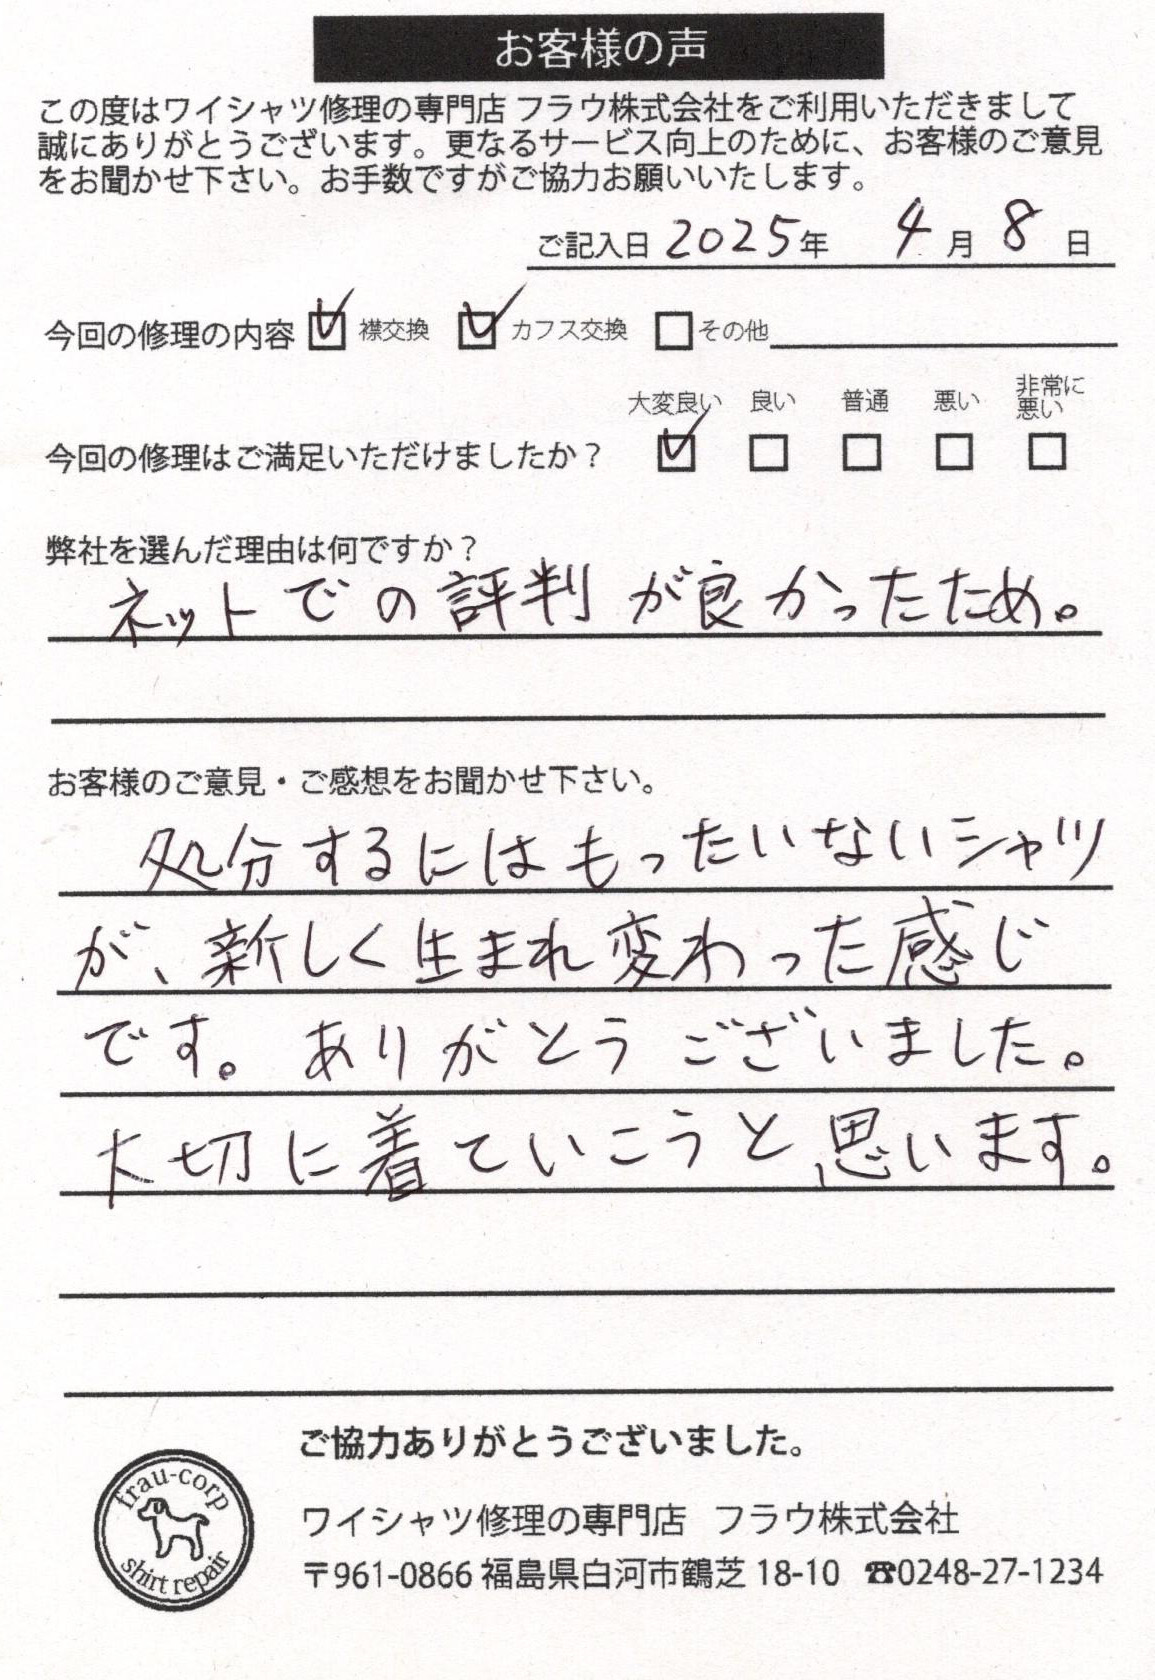 お客様の声
この度はワイシャツ修理の専門店 フラウ株式会社をご利用いただきまして
誠にありがとうございます。更なるサービス向上のために、お客様のご意見
をお聞かせ下さい。お手数ですがご協力お願いいたします。
ご記入日 2025年 4月 8日
今回の修理の内容 襟交換 カフス交換 その他
大変良い 良い 普通 悪い 非常に悪い
今回の修理はご満足いただけましたか？
弊社を選んだ理由は何ですか？
ネットでの評判が良かったため。
お客様のご意見・ご感想をお聞かせ下さい。
処分するにはもったいないシャツ
が、新しく生まれ変わった感じ
です。ありがとうございました。
大切に着ていこうと思います。
ご協力ありがとうございました。
frau-corp
shirt repair
ワイシャツ修理の専門店 フラウ株式会社
〒961-0866 福島県白河市鶴芝 18-10 ☎0248-27-1234